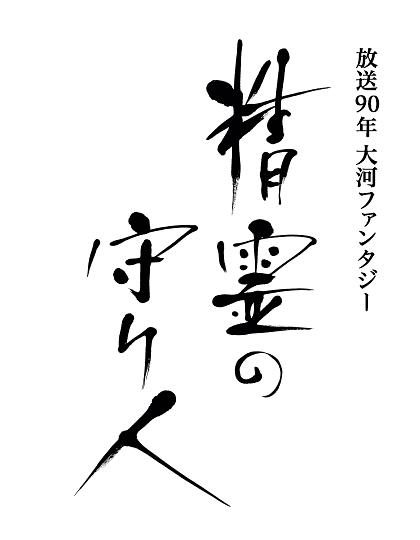 放送90年 大河ファンタジー
精霊の
守り人